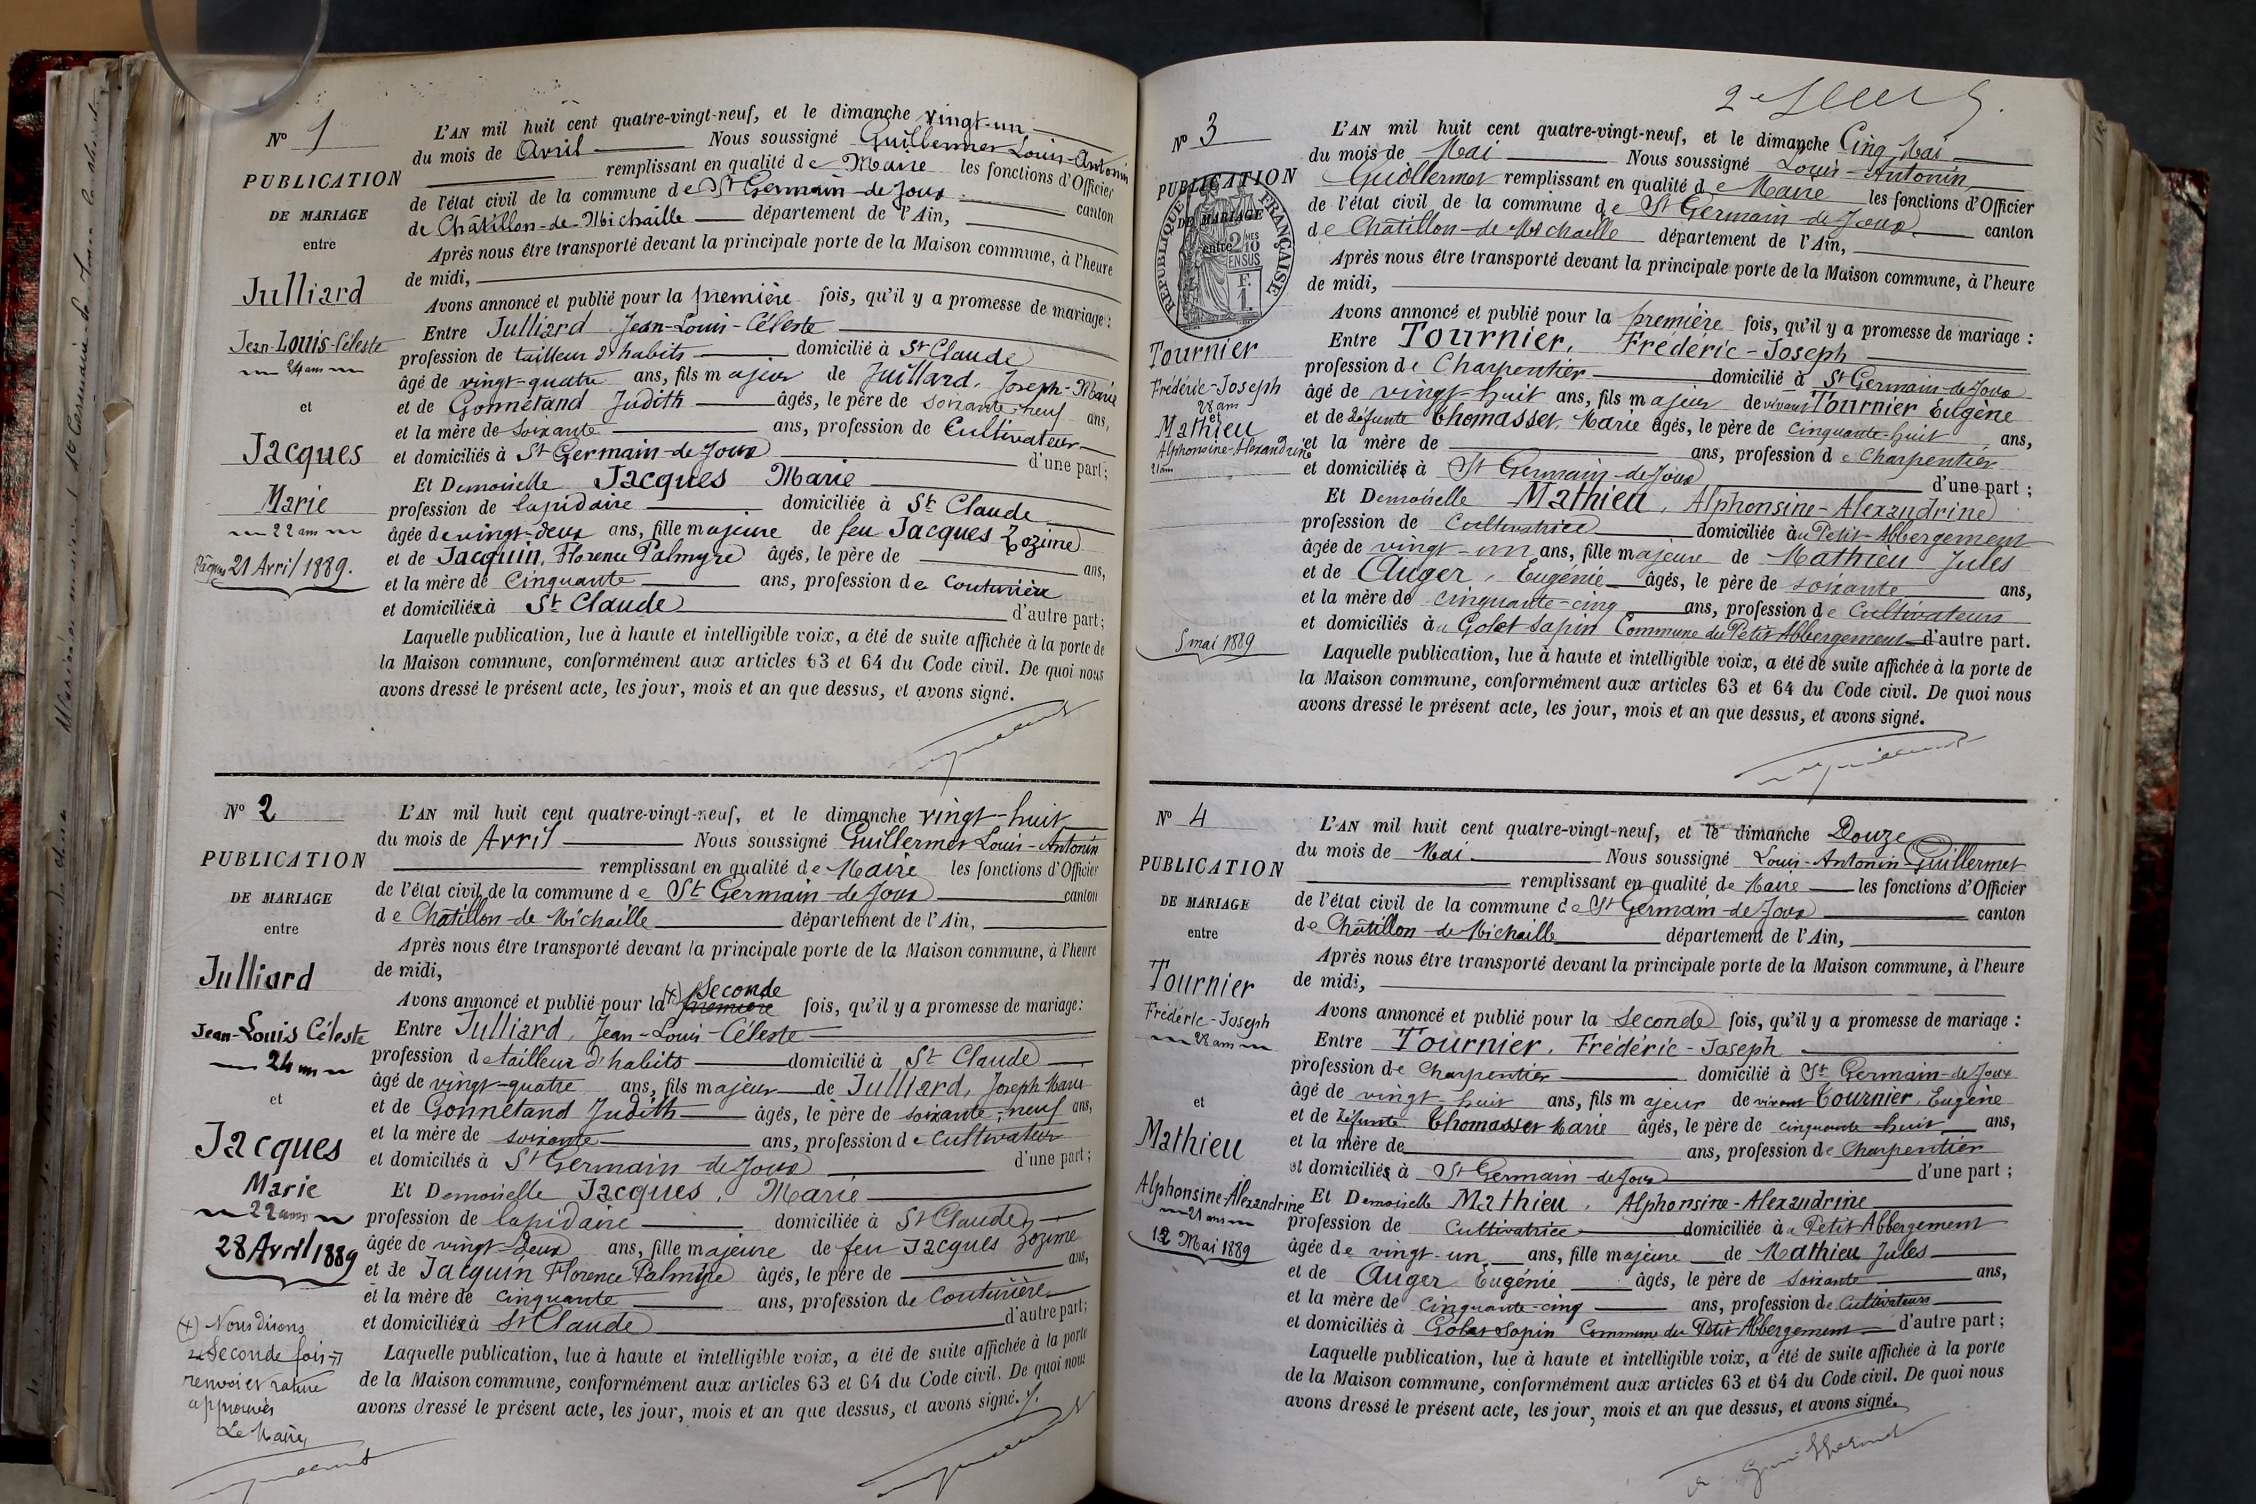 N° 1
PUBLICATION
DE MARIAGE
entre
Julliard
Jean-Louis-Céleste
24 ans
et
Jacques
Marie
22 ans
Pâques 21 Avril 1889.
L'AN mil huit cent quatre-vingt-neuf, et le dimanche vingt-un
du mois de Avril Nous soussigné Guillermet Louis-Antonin
remplissant en qualité de Maire les fonctions d'Officier
de l'état civil de la commune de St Germain-de-Joux canton
de Châtillon-de-Michaille département de l'Ain,
Après nous être transporté devant la principale porte de la Maison commune, à l'heure
de midi,
Avons annoncé et publié pour la première fois, qu'il y a promesse de mariage :
Entre Julliard Jean-Louis-Céleste
profession de tailleur d'habits domicilié à St Claude
âgé de vingt-quatre ans, fils majeur de Juillard, Joseph-Marie
et de Gonnétand Judith âgés, le père de soixante-neuf ans,
et la mère de soixante ans, profession de Cultivateur
et domiciliés à St Germain-de-Joux d'une part;
Et Demoiselle Jacques Marie
profession de lapidaire domiciliée à St Claude
âgée de vingt-deux ans, fille majeure de feu Jacques Zozime
et de Jacquin, Florence Palmyre âgés, le père de ans,
et la mère de Cinquante ans, profession de Couturière
et domiciliée à St Claude d'autre part;
Laquelle publication, lue à haute et intelligible voix, a été de suite affichée à la porte de
la Maison commune, conformément aux articles 63 et 64 du Code civil. De quoi nous
avons dressé le présent acte, les jour, mois et an que dessus, et avons signé.
N° 2
PUBLICATION
DE MARIAGE
entre
Julliard
Jean-Louis Céleste
24 ans
et
Jacques
Marie
22 ans
28 Avril 1889
(+) Nous disons
Seconde fois
renvoi et rature
approuvés
Le Maire,
L'AN mil huit cent quatre-vingt-neuf, et le dimanche vingt-huit
du mois de Avril Nous soussigné Guillermet Louis-Antonin
remplissant en qualité de Maire les fonctions d'Officier
de l'état civil de la commune de St Germain-de-Joux canton
de Châtillon-de-Michaille département de l'Ain,
Après nous être transporté devant la principale porte de la Maison commune, à l'heure
de midi,
Seconde
Avons annoncé et publié pour la (+) première fois, qu'il y a promesse de mariage:
Entre Julliard, Jean-Louis-Céleste
profession de tailleur d'habits domicilié à St Claude
âgé de vingt-quatre ans, fils majeur de Julliard, Joseph Marie
et de Gonnétand Judith âgés, le père de soixante-neuf ans,
et la mère de soixante ans, profession de Cultivateur
et domiciliés à St Germain-de-Joux d'une part;
Et Demoiselle Jacques, Marie
profession de lapidaire domiciliée à St Claude
âgée de vingt-deux ans, fille majeure de feu Jacques Zozime
et de Jacquin Florence Palmyre âgés, le père de ans,
et la mère de cinquante ans, profession de Couturière
et domiciliée à St Claude d'autre part;
Laquelle publication, lue à haute et intelligible voix, a été de suite affichée à la porte
de la Maison commune, conformément aux articles 63 et 64 du Code civil. De quoi nous
avons dressé le présent acte, les jour, mois et an que dessus, et avons signé.
N° 3
PUBLICATION
DE MARIAGE
entre
RÉPUBLIQUE FRANÇAISE
2/10 ES
EN SUS
F.
1
Tournier
Frédéric-Joseph
28 ans
et
Mathieu
Alphonsine-Alexandrine
21 ans
5 mai 1889
L'AN mil huit cent quatre-vingt-neuf, et le dimanche Cinq Mai
du mois de Mai Nous soussigné Louis-Antonin
Guillermet remplissant en qualité de Maire les fonctions d'Officier
de l'état civil de la commune de St Germain-de-Joux
de Châtillon-de-Michaille département de l'Ain, canton
Après nous être transporté devant la principale porte de la Maison commune, à l'heure
de midi,
Avons annoncé et publié pour la première fois, qu'il y a promesse de mariage :
Entre Tournier, Frédéric-Joseph
profession de Charpentier domicilié à St Germain-de-Joux
âgé de vingt-huit ans, fils majeur de vivant Tournier Eugène
et de défunte Thomasset, Marie âgés, le père de cinquante-huit ans,
et la mère de ans, profession de Charpentier
et domiciliés à St Germain-de-Joux d'une part ;
Et Demoiselle Mathieu, Alphonsine-Alexandrine
profession de Cultivatrice domiciliée au Petit-Abbergement
âgée de vingt-un ans, fille majeure de Mathieu Jules
et de Auger, Eugénie âgés, le père de soixante ans,
et la mère de cinquante-cinq ans, profession de Cultivateurs
et domiciliés à Golet Sapin Commune du Petit Abbergement d'autre part.
Laquelle publication, lue à haute et intelligible voix, a été de suite affichée à la porte de
la Maison commune, conformément aux articles 63 et 64 du Code civil. De quoi nous
avons dressé le présent acte, les jour, mois et an que dessus, et avons signé.
N° 4
PUBLICATION
DE MARIAGE
entre
Tournier
Frédéric-Joseph
28 ans
et
Mathieu
Alphonsine-Alexandrine
21 ans
12 Mai 1889
L'AN mil huit cent quatre-vingt-neuf, et le dimanche Douze
du mois de Mai Nous soussigné Louis-Antonin Guillermet
remplissant en qualité de Maire les fonctions d'Officier
de l'état civil de la commune de St Germain-de-Joux canton
de Châtillon-de-Michaille département de l'Ain,
Après nous être transporté devant la principale porte de la Maison commune, à l'heure
de midi,
Avons annoncé et publié pour la Seconde fois, qu'il y a promesse de mariage :
Entre Tournier, Frédéric-Joseph
profession de Charpentier domicilié à St Germain-de-Joux
âgé de vingt-huit ans, fils majeur de vivant Tournier, Eugène
et de défunte Thomasset Marie âgés, le père de cinquante-huit ans,
et la mère de ans, profession de Charpentier
et domiciliés à St Germain-de-Joux d'une part ;
Et Demoiselle Mathieu, Alphonsine-Alexandrine
profession de Cultivatrice domiciliée à Petit Abbergement
âgée de vingt-un ans, fille majeure de Mathieu Jules
et de Auger Eugénie âgés, le père de soixante ans,
et la mère de cinquante-cinq ans, profession de Cultivateurs
et domiciliés à Golet Sapin Commune du Petit Abbergement d'autre part ;
Laquelle publication, lue à haute et intelligible voix, a été de suite affichée à la porte
de la Maison commune, conformément aux articles 63 et 64 du Code civil. De quoi nous
avons dressé le présent acte, les jour, mois et an que dessus, et avons signé.
Guillermet